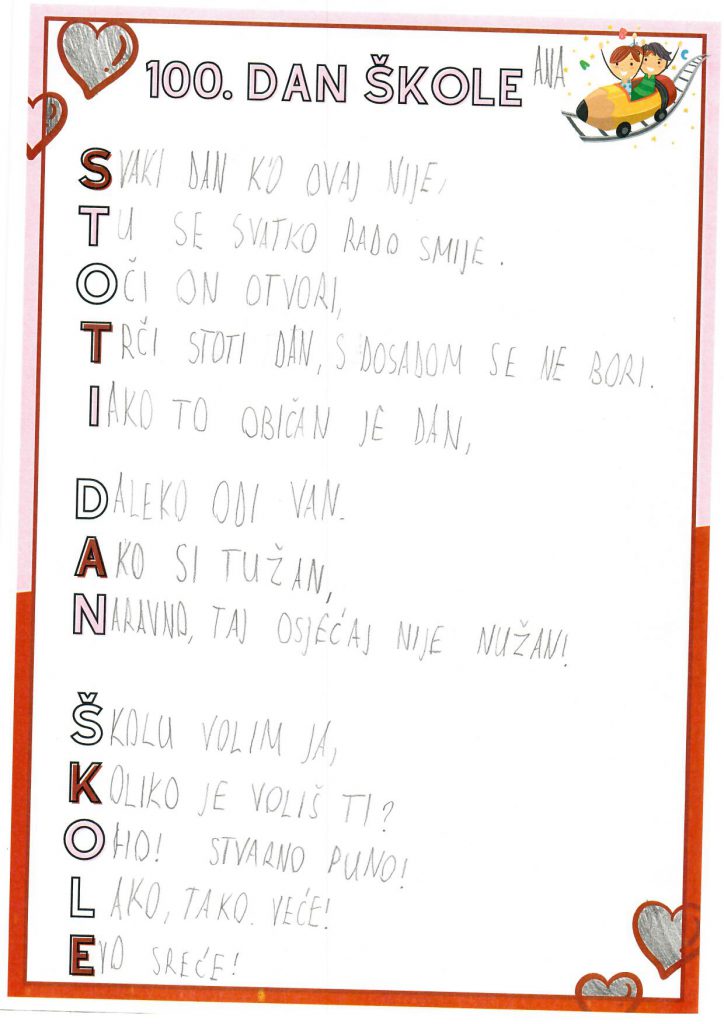 100. DAN ŠKOLE
ANA
SVAKI DAN K'O OVAJ NIJE,
TU SE SVATKO RADO SMIJE.
OČI ON OTVORI,
TRČI STOTI DAN, S DOSADOM SE NE BORI.
IAKO TO OBIČAN JE DAN,
DALEKO ODI VAN.
AKO SI TUŽAN,
NARAVNO, TAJ OSJEĆAJ NIJE NUŽAN!
ŠKOLU VOLIM JA,
KOLIKO JE VOLIŠ TI?
OHO! STVARNO PUNO!
LAKO, TAKO. VEĆE!
EVO SREĆE!